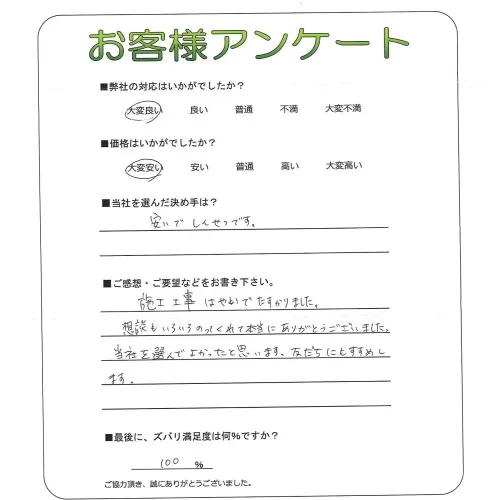 お客様アンケート
■弊社の対応はいかがでしたか？
大変良い 良い 普通 不満 大変不満
■価格はいかがでしたか？
大変安い 安い 普通 高い 大変高い
■当社を選んだ決め手は？
安いで しんせつです。
■ご感想・ご要望などをお書き下さい。
施工工事 はやいで たすかりました。
想談もいろいろのってくれて本当に ありがとうございました。
当社を選んで よかったと思います。友だちにもすすめし
ます。
■最後に、ズバリ満足度は何％ですか？
100 ％
ご協力頂き、誠にありがとうございました。